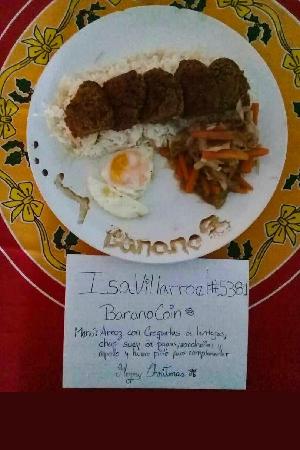 Banano
IsaVillarroel#5381
BananoCoin
Menú: Arroz con Croquetas de lentejas,
chop suey de papas, zanahorias y
repollo y huevo frito para complementar
Happy Christmas